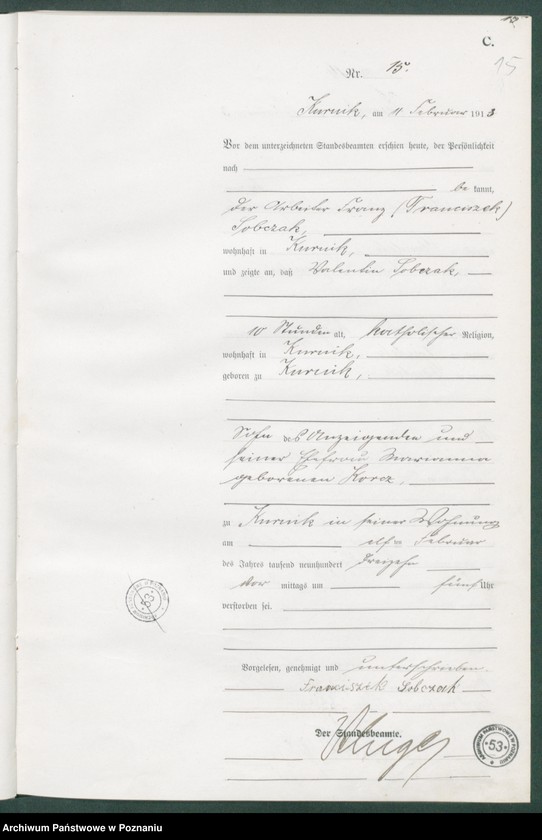 C.
15
Nr. 15.
Kurnik, am 11 Februar 1913
Vor dem unterzeichneten Standesbeamten erschien heute, der Persönlichkeit
nach
be kannt,
der Arbeiter Franz (Franciszek)
Sobczak,
wohnhaft in Kurnik,
und zeigte an, daß Valentin Sobczak,
10 Stunden alt, katholischer Religion,
wohnhaft in Kurnik,
geboren zu Kurnik,
Sohn des Anzeigenden und
seiner Ehefrau Marianna
geborenen Korcz,
zu Kurnik in seiner Wohnung
am elften Februar
des Jahres tausend neunhundert dreizehn
vor mittags um fünf Uhr
verstorben sei.
Vorgelesen, genehmigt und unterschrieben.
Franciszek Sobczak
Der Standesbeamte.
53
53
Archiwum Państwowe w Poznaniu